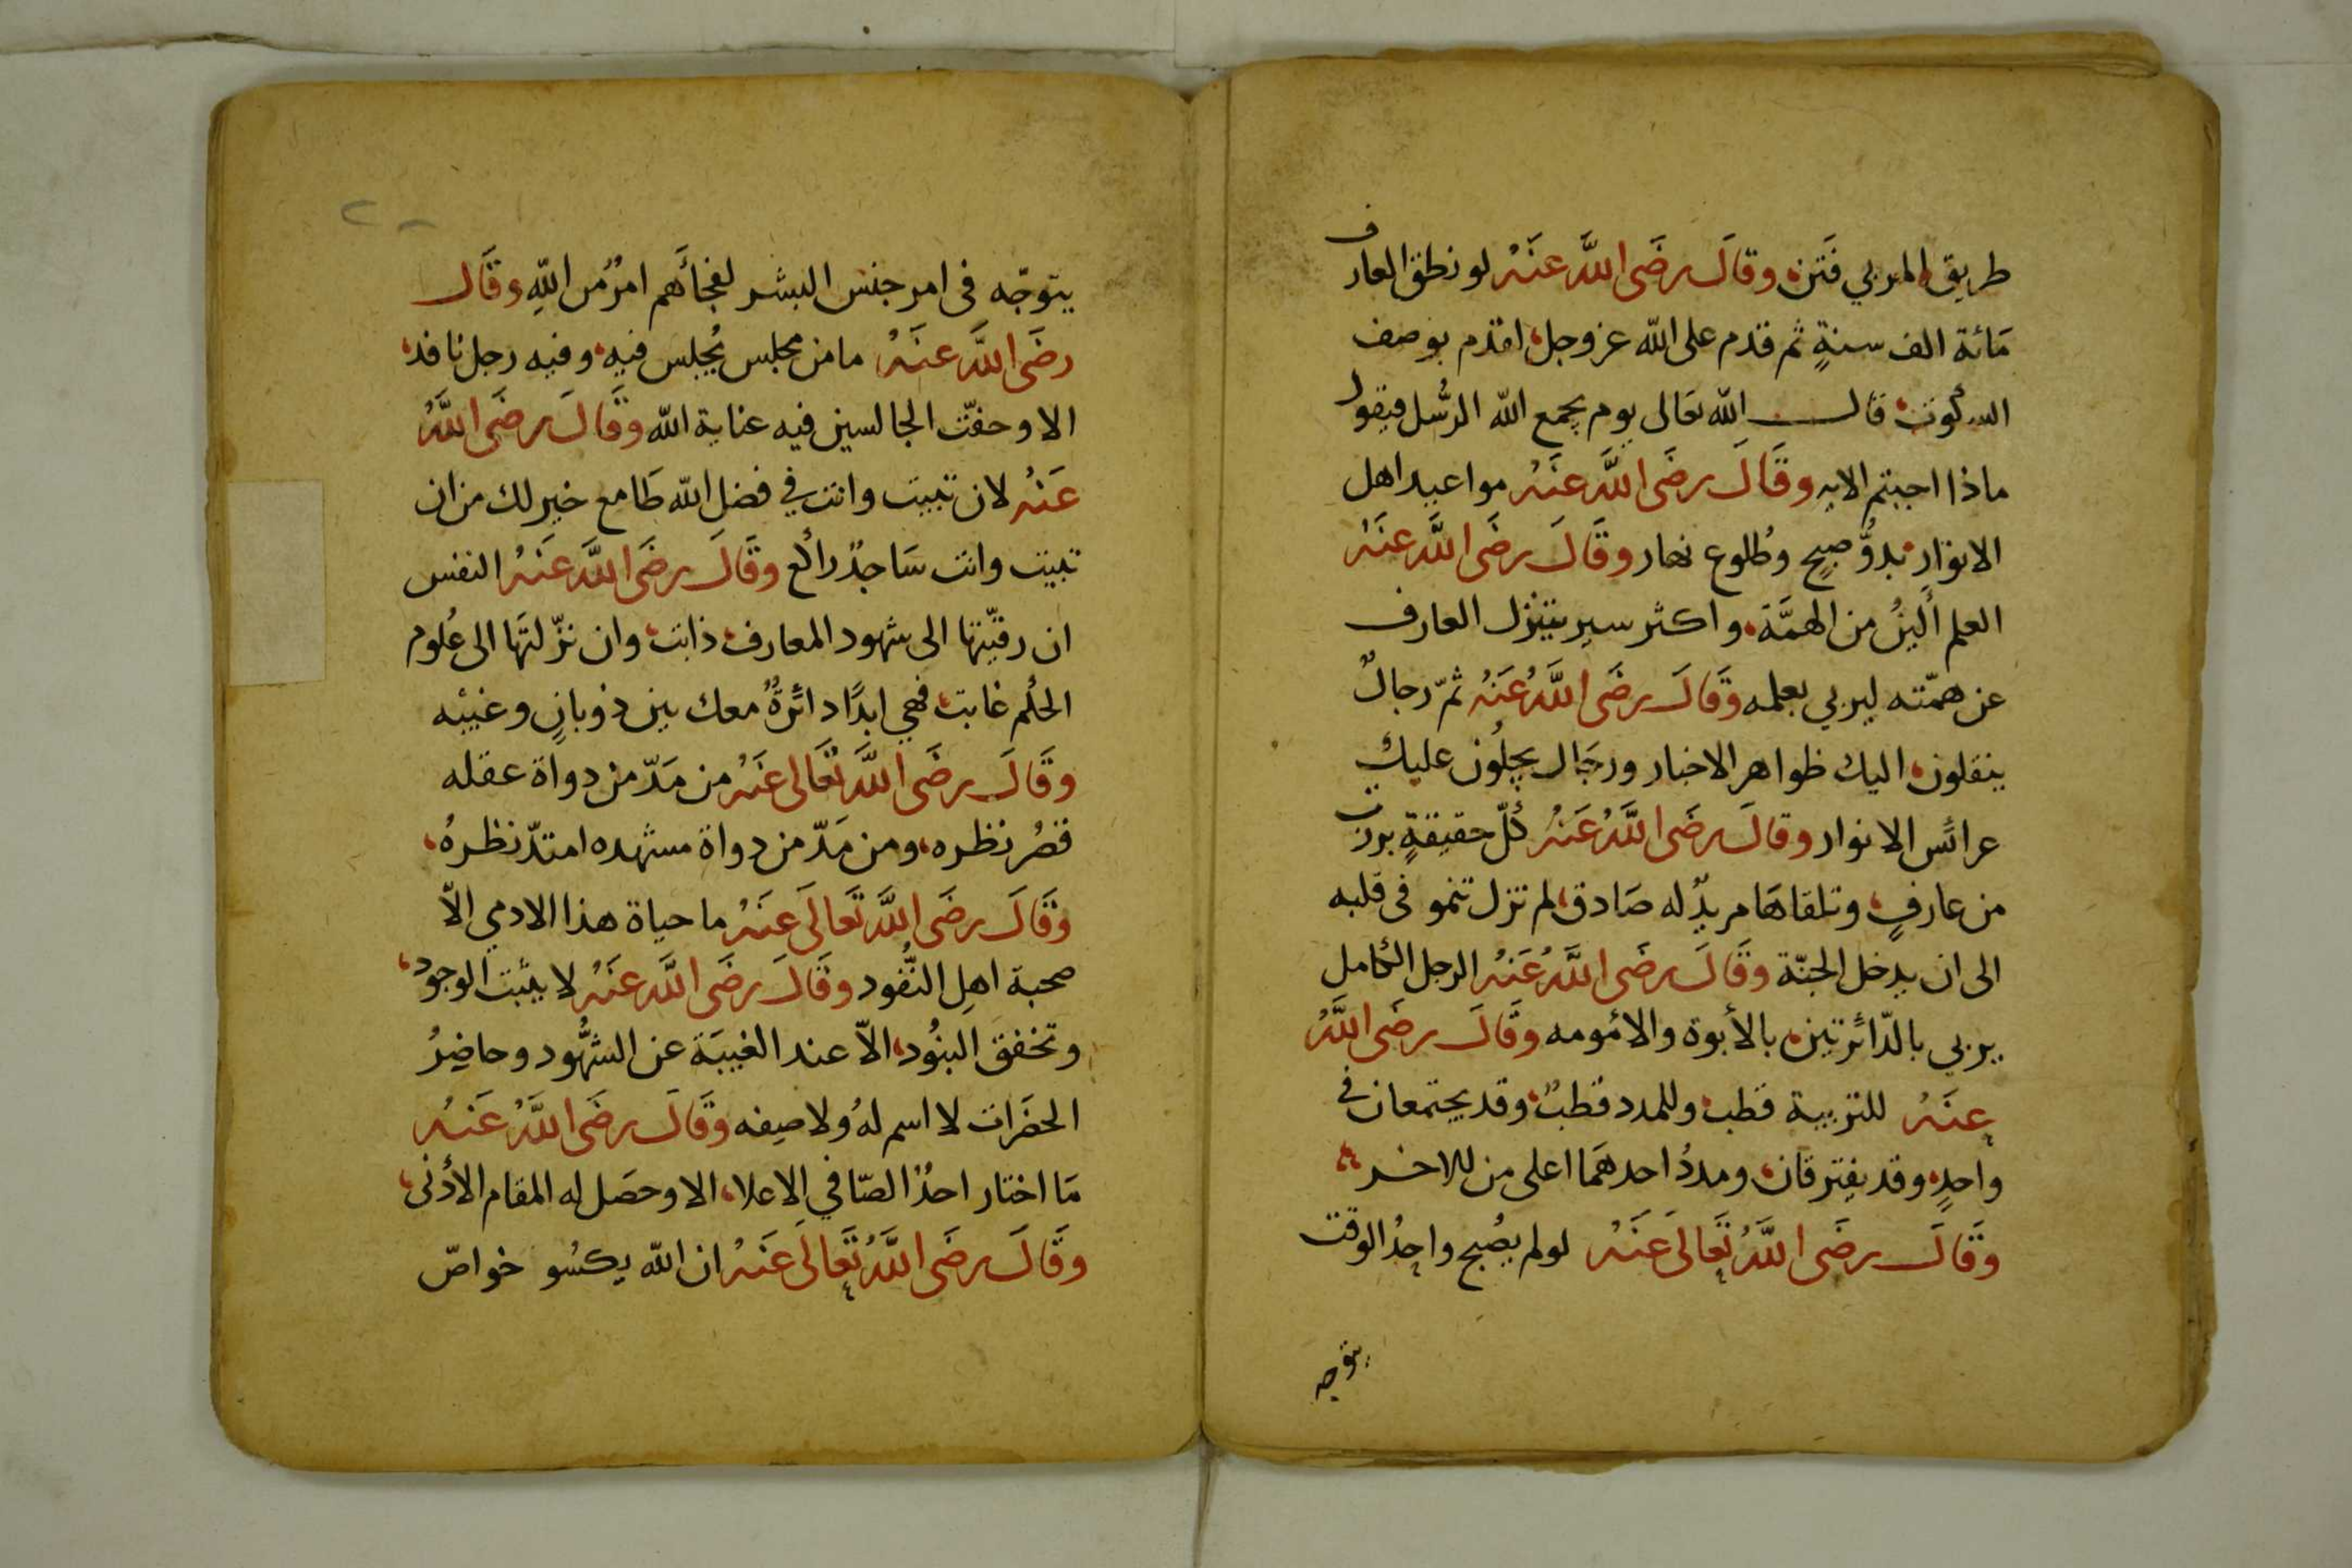 طريق المربي فَتَن وقالَ رضَى اللَّه عنَهُ لو نطق العارف
مَائة الف سنةٍ ثم قدم على اللّه عز وجل، اقدم بوصف
السكوت، قال اللّه تعَالى يوم يجمع اللّه الرسُل فيقول
ماذا اجبتم الايه وقَالَ رضَى اللَّه عنَهُ مواعيد اهل
الانوَار بدوُّ صبحٍ وُطلوع نهار وقَالَ رضَى اللَّه عنَهُ
العلم أَليَنُ من الهمَّة، واكثر سيرٍ يتنزل العارف
عن همّته ليربي بعلمه وَقَالَ رضَى اللَّهُ عَنَهُ ثمّ رجالٌ
ينقلون، اليك ظواهر الاخبار ورجَال يجلُون عليك
عرائَس الانوار وقالَ رضَى اللَّهُ عَنهُ كُلّ حقيقةٍ برزت
من عارفٍ، وتلقاهَا مريدٌ له صَادق، لم تزل تنمو فى قلبه
الى ان يدخل الجنّة وقَالَ رضَى اللَّهُ عَنهُ الرجل الكامل
يربي بالدّائَرتين، بالأبوة والأمومه وقَالَ رضَى اللَّهُ
عنَهُ للتربية قطب، وللمدد قطبٌ، وقد يجتمعان في
واحدٍ، وقد يفترقان، ومددُ احدهمَا اعلى من للاخر
وَقَالَ رضَى اللَّهُ تَعَالىَ عَنَهُ لولم يصُبح واحِدُ الوقت
يتوجه
يتوجّه فى امر جنس البشر لفجأَهم امرٌ مُن اللّهِ وقَال
رضَى اللَّه عنَهُ ما من مجلس يُجلس فيه، وفيه رجل نافد،
الا وحفّت الجالسين فيه عناية اللّه وَقَالَ رضَى اللَّهُ
عَنهُ لان تبيت وانت في فضل اللّه طَامع خير لك من ان
تبيت وانت سَاجدٌ رائَع وقَالَ رضَى اللَّه عَنَهُ النفس
ان رقيّتها الى شهود المعارف، ذابت، وان نزّلتَها الى عُلوم
الحلُم غابت، فهي ابدًا دائَرةٌ معك بين ذوبانٍ وغيبه
وقَالَ رضَى اللَّه تَعَالىَ عنَهُ من مَدّ من دواة عقله
قصُر نظره، ومن مَدّ من دواة مشهده امتدّ نظرهُ،
وَقَالَ رضَى اللَّه تَعَالىَ عنَهُ ما حياة هذا الادمي الاّ
صحبة اهلِ النّفُود وقَالَ رضَى اللَّه عَنَهُ لا يثبت الوجود،
وتخفق البنُود، الاّ عند الغيبَة عن الشّهُود وحاضِرُ
الحضَرات لا اسم لهُ ولا صِفه وقَالَ رضَى اللَّهُ عَنهُ
مَا اختار احدٌ الصّافي الاعلا، الا وحصَل له المقام الأدنى،
وقَالَ رضَى اللَّهُ تَعَالىَ عَنَهُ ان اللّه يكسُو خواصّ